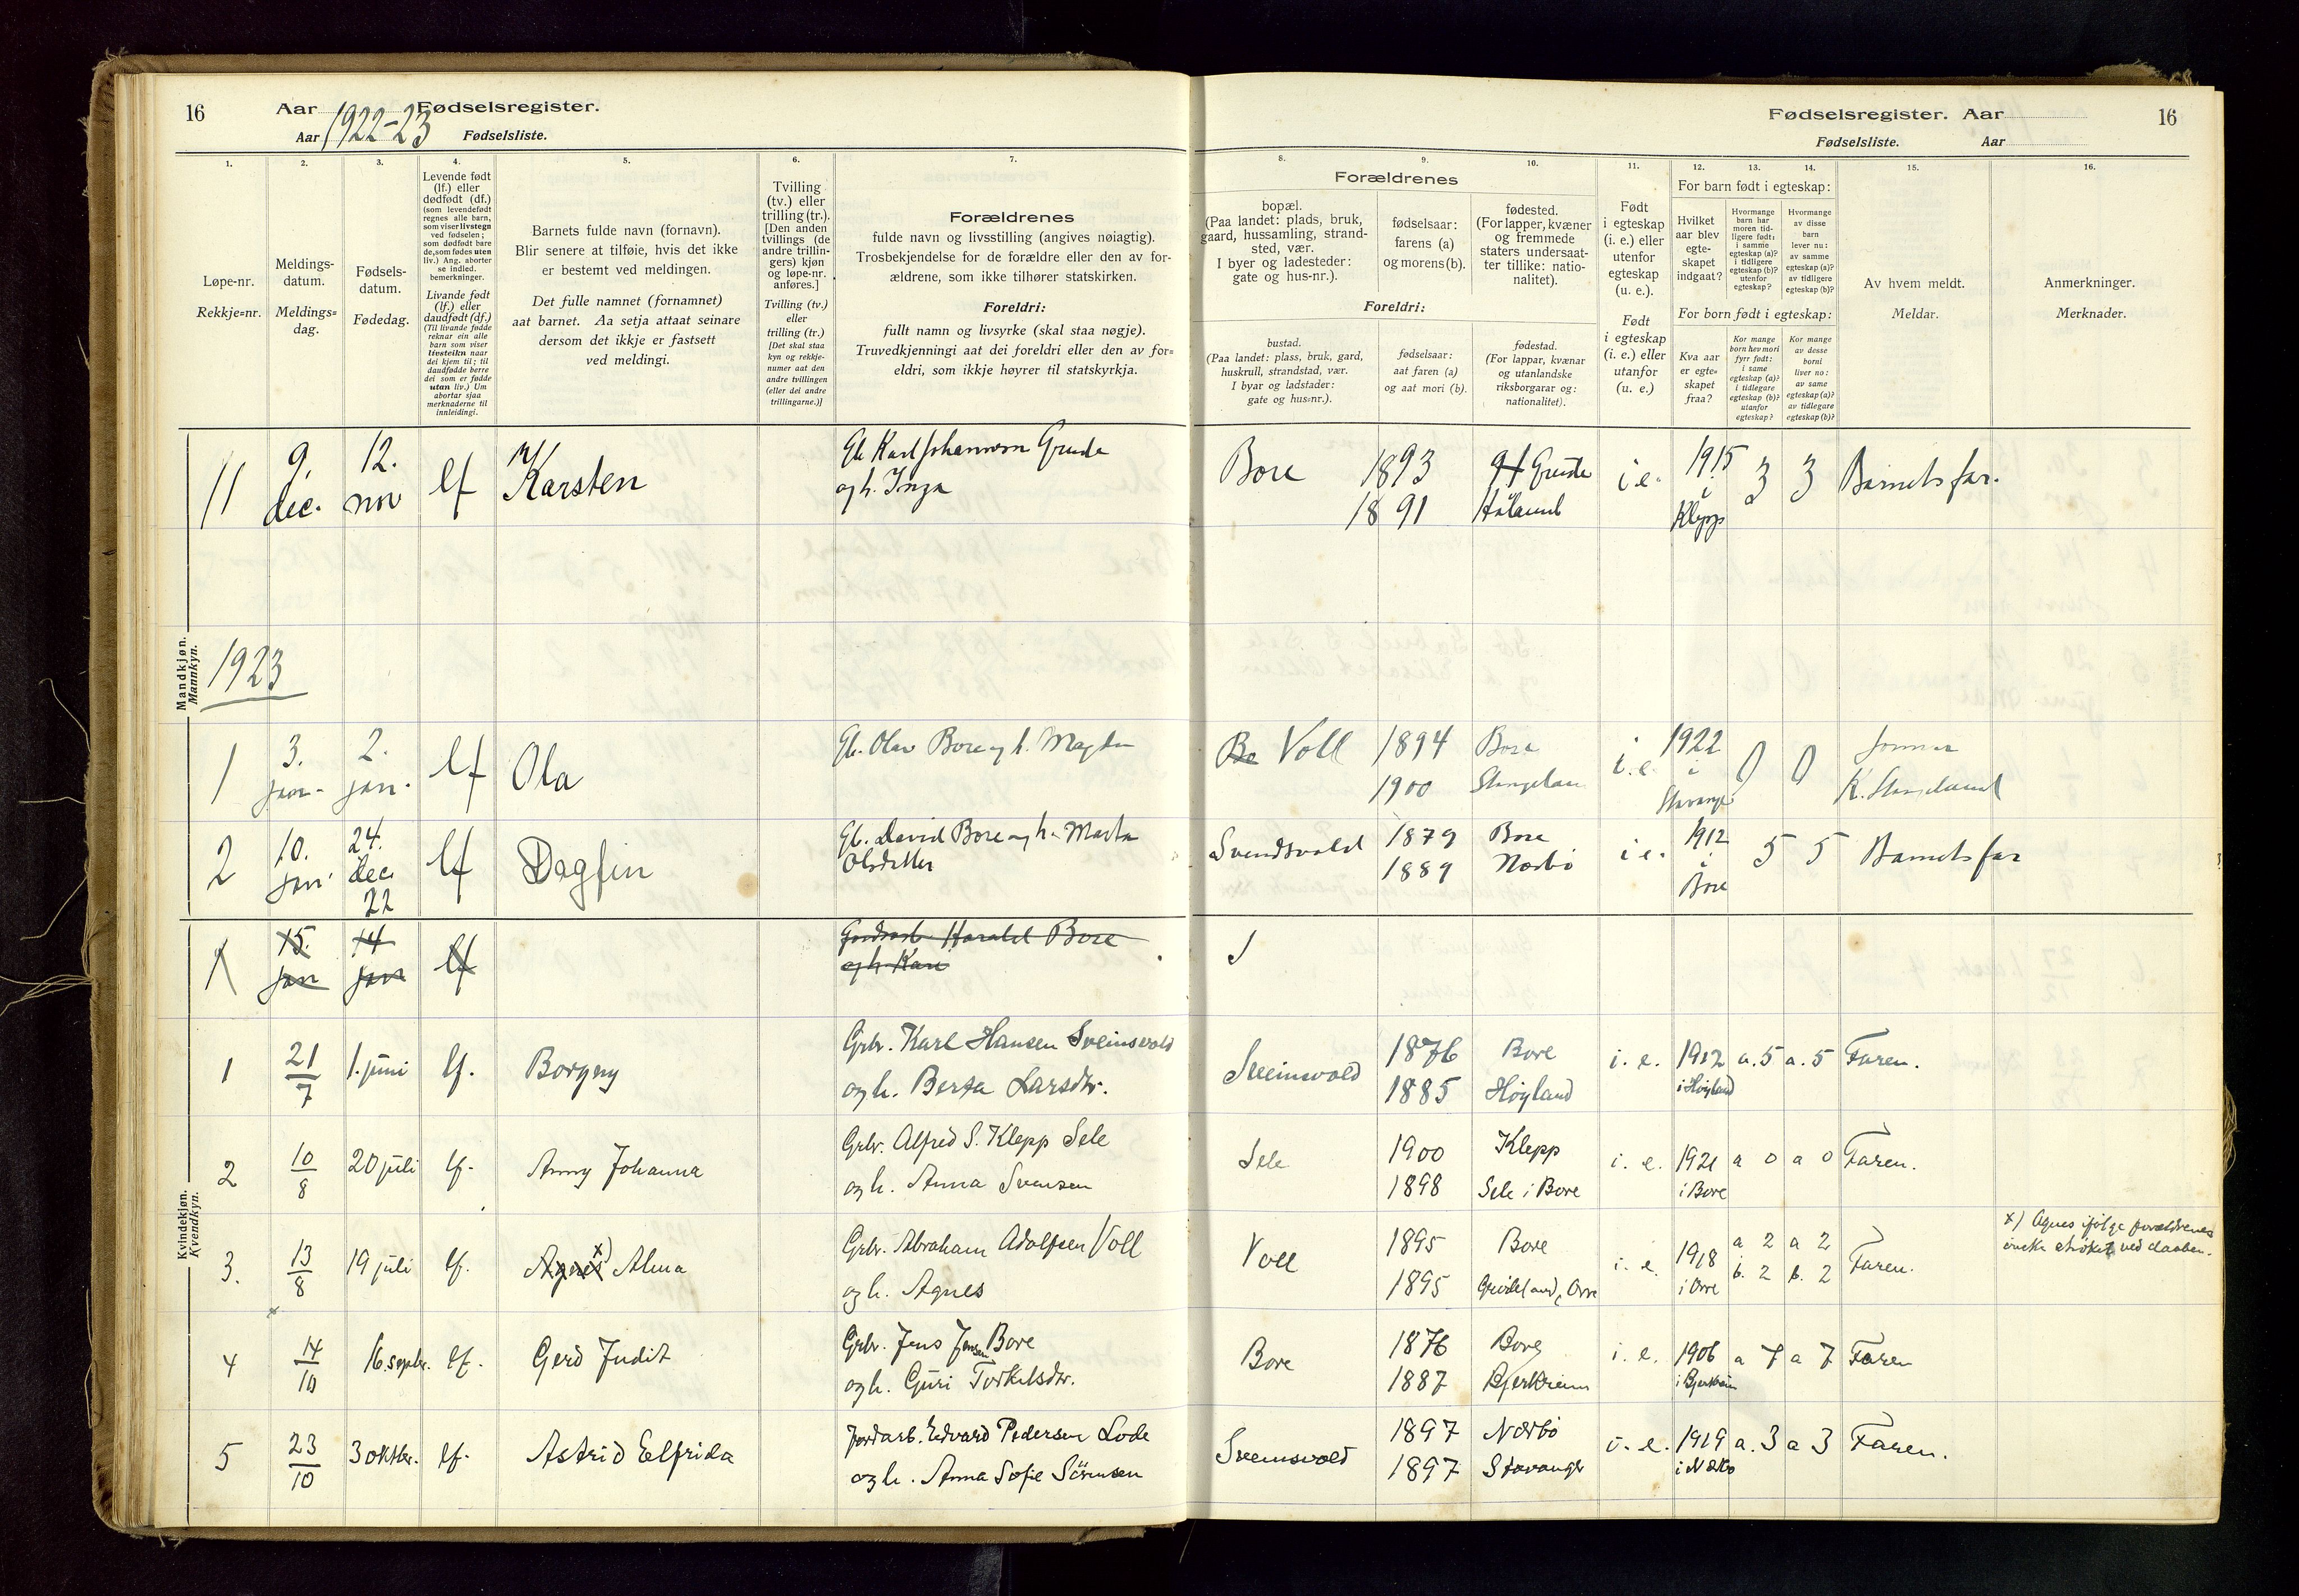 16
Aar 1922-23 Fødselsregister.
Aar Fødselsliste.
1.
2.
3.
4.
5.
6.
7.
Løpe-nr.
Rekkje=nr.
Meldings-
datum.
Meldings=
dag.
Fødsels-
datum.
Fødedag.
Levende født
(lf.) eller
dødfødt (df.)
(som levendefødt
regnes alle barn,
som viser livstegn
ved fødselen;
som dødfødt bare
de, som fødes uten
liv.) Ang. aborter
se indled.
bemerkninger.
Livande født
(lf.) eller
daudfødt (df.)
(Til livande fødde
reknar ein alle
barn som viser
livsteikn naar
dei kjem til; til
daudfødde berre
dei som er fødde
utan liv.) Um
abortar sjaa
merknaderne til
innleidingi.
Barnets fulde navn (fornavn).
Blir senere at tilføie, hvis det ikke
er bestemt ved meldingen.
Det fulle namnet (fornamnet)
aat barnet. Aa setja attaat seinare
dersom det ikkje er fastsett
ved meldingi.
Tvilling
(tv.) eller
trilling (tr.).
[Den anden
tvillings (de
andre trillin-
gers) kjøn
og løpe-nr.
anføres.]
Tvilling (tv.)
eller
trilling (tr.)
[Det skal staa
kyn og rekkje-
numer aat den
andre tvillingen
(eller dei andre
trillingarne.)]
Forældrenes
fulde navn og livsstilling (angives nøiagtig).
Trosbekjendelse for de forældre eller den av for-
ældrene, som ikke tilhører statskirken.
Foreldri:
fullt namn og livsyrke (skal staa nøgje).
Truvedkjenningi aat dei foreldri eller den av for=
eldri, som ikkje høyrer til statskyrkja.
Mandkjøn.
Mannkyn.
11 9. dec. 12. nov lf Karsten
og h. Inga
1923
1 3. jan. 2. jan. lf Ola Gb. Olav Bore og h. Magda
2 10. jan. 24. dec. 22 lf Dagfin Gb. David Bore og h. Marta
Olsdatter
1 15. jan 14 jan lf Harald Bore
og h. Kari
Kvindekjøn.
Kvendkyn.
1 21/7 1. juni lf. Borgny Grbr. Karl Hansen Sveinsvold
og h. Berta Larsdtr.
2 10/8 20 juli lf. Anny Johanna Grbr. Alfred S. Klepp Sele
og h. Anna Svensen
3. 13/8 19 juli lf. Agnes x) Alma Grbr. Abraham Adolfsen Voll
og h. Agnes
4 14/10 16. septbr. lf. Gerd Judit Grbr. Jens Jensen Bore
og h. Guri Torkelsdtr.
5 23/10 3 oktbr. lf. Astrid Elfrida Jordarb. Edvard Pedersen Lode
og h. Anna Sofie Sörensen
Fødselsregister. Aar
16
Fødselsliste. Aar
8.
9.
10.
11.
12.
13.
14.
15.
16.
Forældrenes
bopæl.
(Paa landet: plads, bruk,
gaard, hussamling, strand-
sted, vær.
I byer og ladesteder:
gate og hus-nr.).
fødselsaar:
farens (a)
og morens (b).
fødested.
(For lapper, kvæner
og fremmede
staters undersaat-
ter tillike: natio-
nalitet).
Foreldri:
bustad.
(Paa landet: plass, bruk, gard,
huskrull, strandstad, vær.
I byar og ladstader:
gate og hus=nr.).
fødselsaar:
aat faren (a)
og aat mori (b).
fødestad.
(For lappar, kvænar
og utanlandske
riksborgarar og:
nationalitet).
Født
i egteskap
(i. e.) eller
utenfor
egteskap
(u. e.).
Født
i egteskap
(i. e.) eller
utanfor
(u. e.)
For barn født i egteskap:
Hvilket
aar blev
egte-
skapet
indgaat?
Hvormange
barn har
moren tid-
ligere født:
i samme
egteskap (a)?
i tidligere
egteskap (b)?
utenfor
egteskap?
Hvormange
av disse
barn
lever nu:
av samme
egteskap (a)?
av tidligere
egteskap (b)?
For born født i egteskap:
Kva aar
er egte=
skapet
fraa?
Kor mange
born hev mori
fyrr født:
i same
egteskap (a)?
i tidlegare
egteskap (b)?
utanfor
egteskap?
Kor mange
av desse
borni
liver no:
av same
egteskap (a)?
av tidlegare
egteskap (b)?
Av hvem meldt.
Meldar.
Anmerkninger.
Merknader.
Bore 1893 Grude i e. 1915 3 3 Barnets far.
1891 Håland i Klepp
Voll 1894 Bore i. e. 1922 0 0
1900 i Stavanger
Svendsvold 1879 Bore i e. 1912 5 5 Barnets far
1889 Nærbø i Bore
Sveinsvold 1876 Bore i. e. 1912 a. 5 a. 5 Faren.
1885 Höyland i Höyland
Sele 1900 Klepp i. e. 1921 a 0 a 0 Faren.
1898 Sele i Bore i Bore
Voll 1895 Bore i. e. 1918 a 2 a 2 Faren.
1895 Orre i Orre b. 2 b. 2
x) Agnes ifölge forældrenes
önske strøket ved daaben.
Bore 1876 Bore i. e. 1906 a 7 a 7 Faren
1887 Bjerkreim i Bjerkreim
Sveinsvold 1897 Nærbö i. e. 1919 a. 3 a 3 Faren.
1897 Stavanger i Nærbö